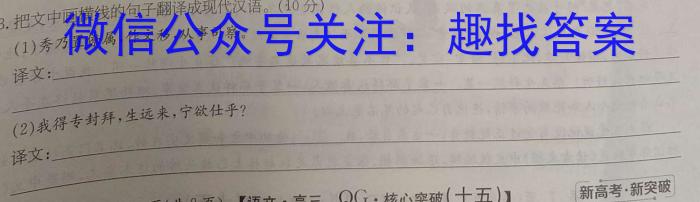 3.把文中画横线的句子翻译成现代汉语。(10分)
微信公众号关注：趣找答案
(1)秀乃
译文：
(2)我得专封拜，生远来，宁欲仕乎？
译文：
【语文·高三 QG·核心突破(十五)】
新高考·新突破